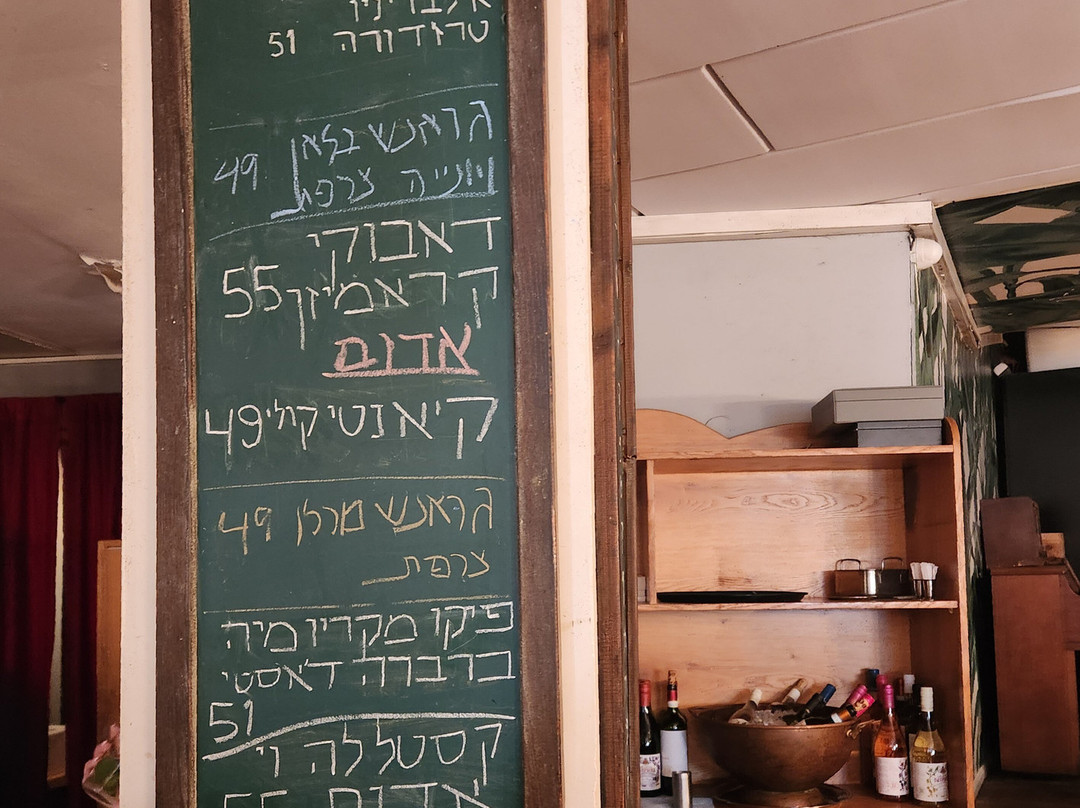 אלבריניו
טרזדורה 51
גראנש בלאן
ויונייה צרפת 49
דאבוקי
קראמיזן 55
אדום
קיאנטי קולי 49
גראנש מרלו 49
צרפת
פיקו מקריו מיה
ברברה ד'אסטי
51
קסטללה וי
אדום 55